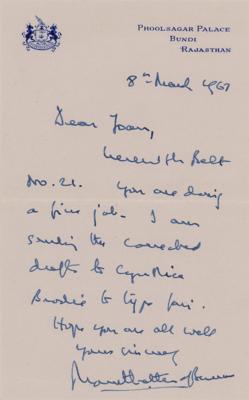 PHOOLSAGAR PALACE
BUNDI
RAJASTHAN
8th March 1967
Dear Joan,
Herewith Belt
No. 21. You are doing
a fine job. I am
sending the corrected
drafts to
Brodie to type fair.
Hope you are all well
Yours sincerely